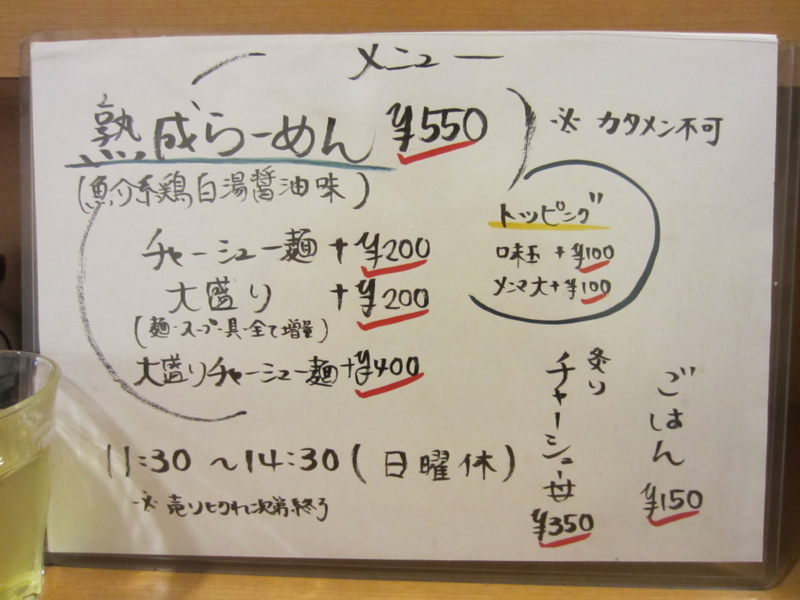 メニュー
熟成らーめん ¥550
※ カタメン不可
(魚介系鶏白湯醤油味)
トッピング
味玉 +¥100
メンマ大+¥100
チャーシュー麺 +¥200
大盛り +¥200
(麺・スープ・具・全て増量)
大盛りチャーシュー麺+¥400
炙り
チャーシュー丼
¥350
ごはん
¥150
11:30 〜14:30 (日曜休)
※ 売り切れ次第終了